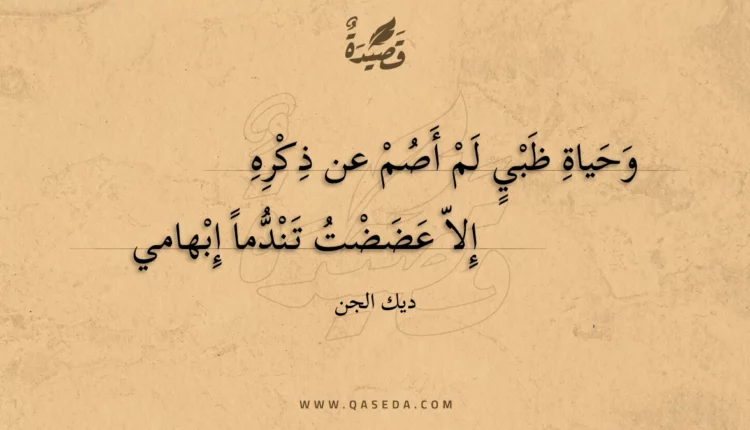 قَصِيدَةٌ
وَحَياةِ ظَبْيٍ لَمْ أَصُمْ عن ذِكْرِهِ
إِلاّ عَضَضْتُ تَنْدُّماً إِبْهامي
ديك الجن
WWW.QASEDA.COM